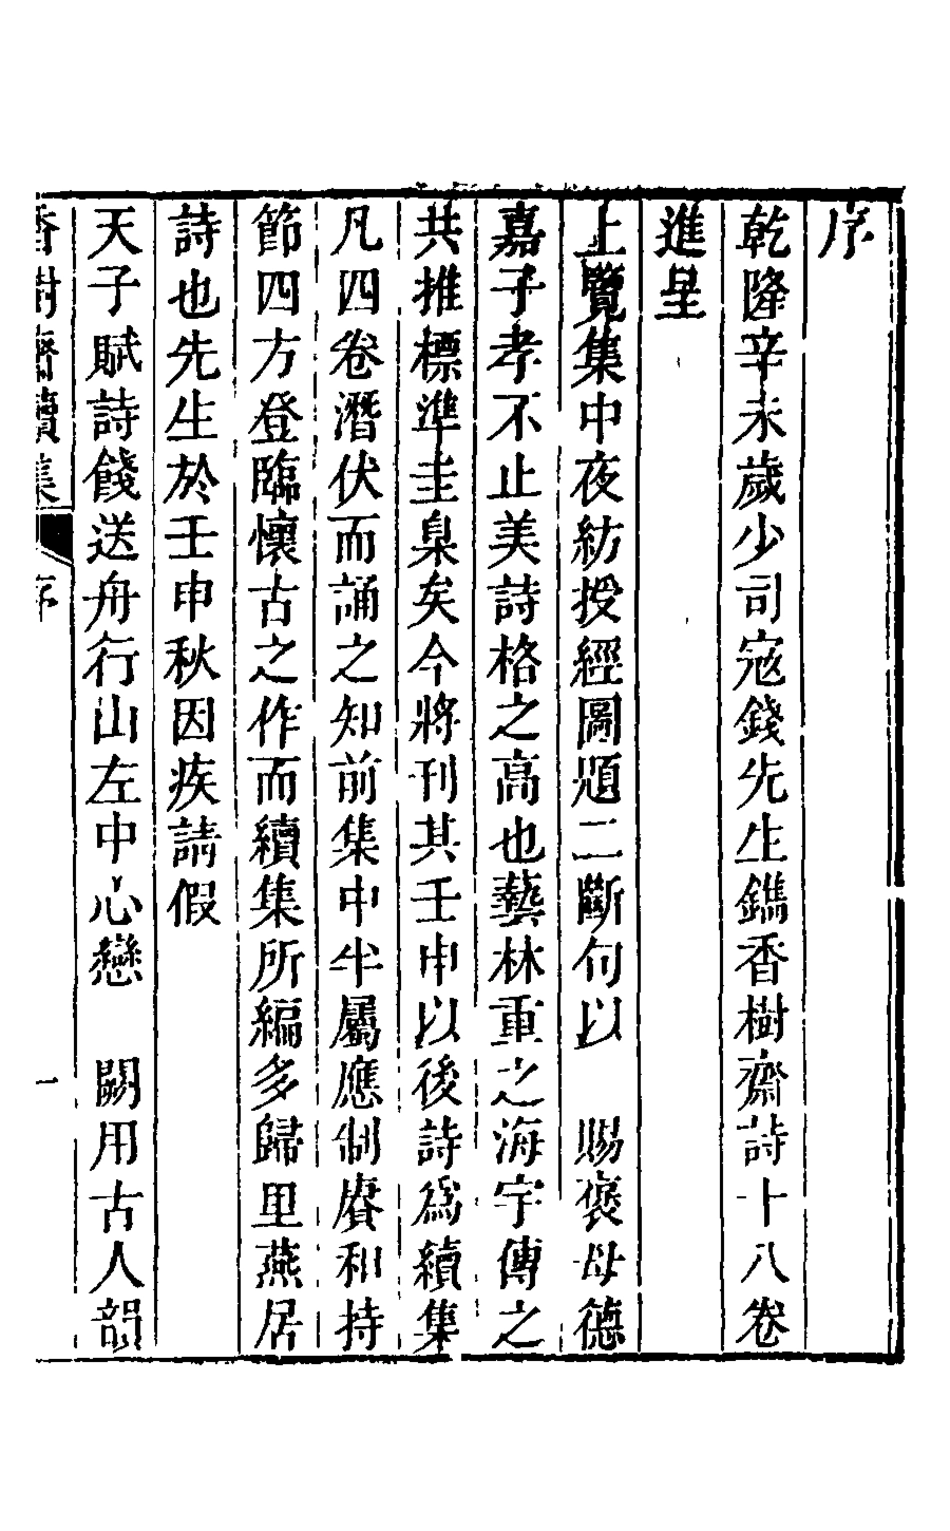 序
乾隆辛未歲少司寇錢先生鐫香樹齋詩十八卷
進呈
上覽集中夜紡授經圖題二斷句以　賜褒母德
嘉子孝不止美詩格之高也藝林重之海宇傳之
共推標準圭臬矣今將刊其壬申以後詩爲續集
凡四卷潛伏而誦之知前集中半屬應制賡和持
節四方登臨懷古之作而續集所編多歸里燕居
詩也先生於壬申秋因疾請假
天子賦詩餞送舟行山左中心戀　闕用古人韻
香樹齋續集　序　一